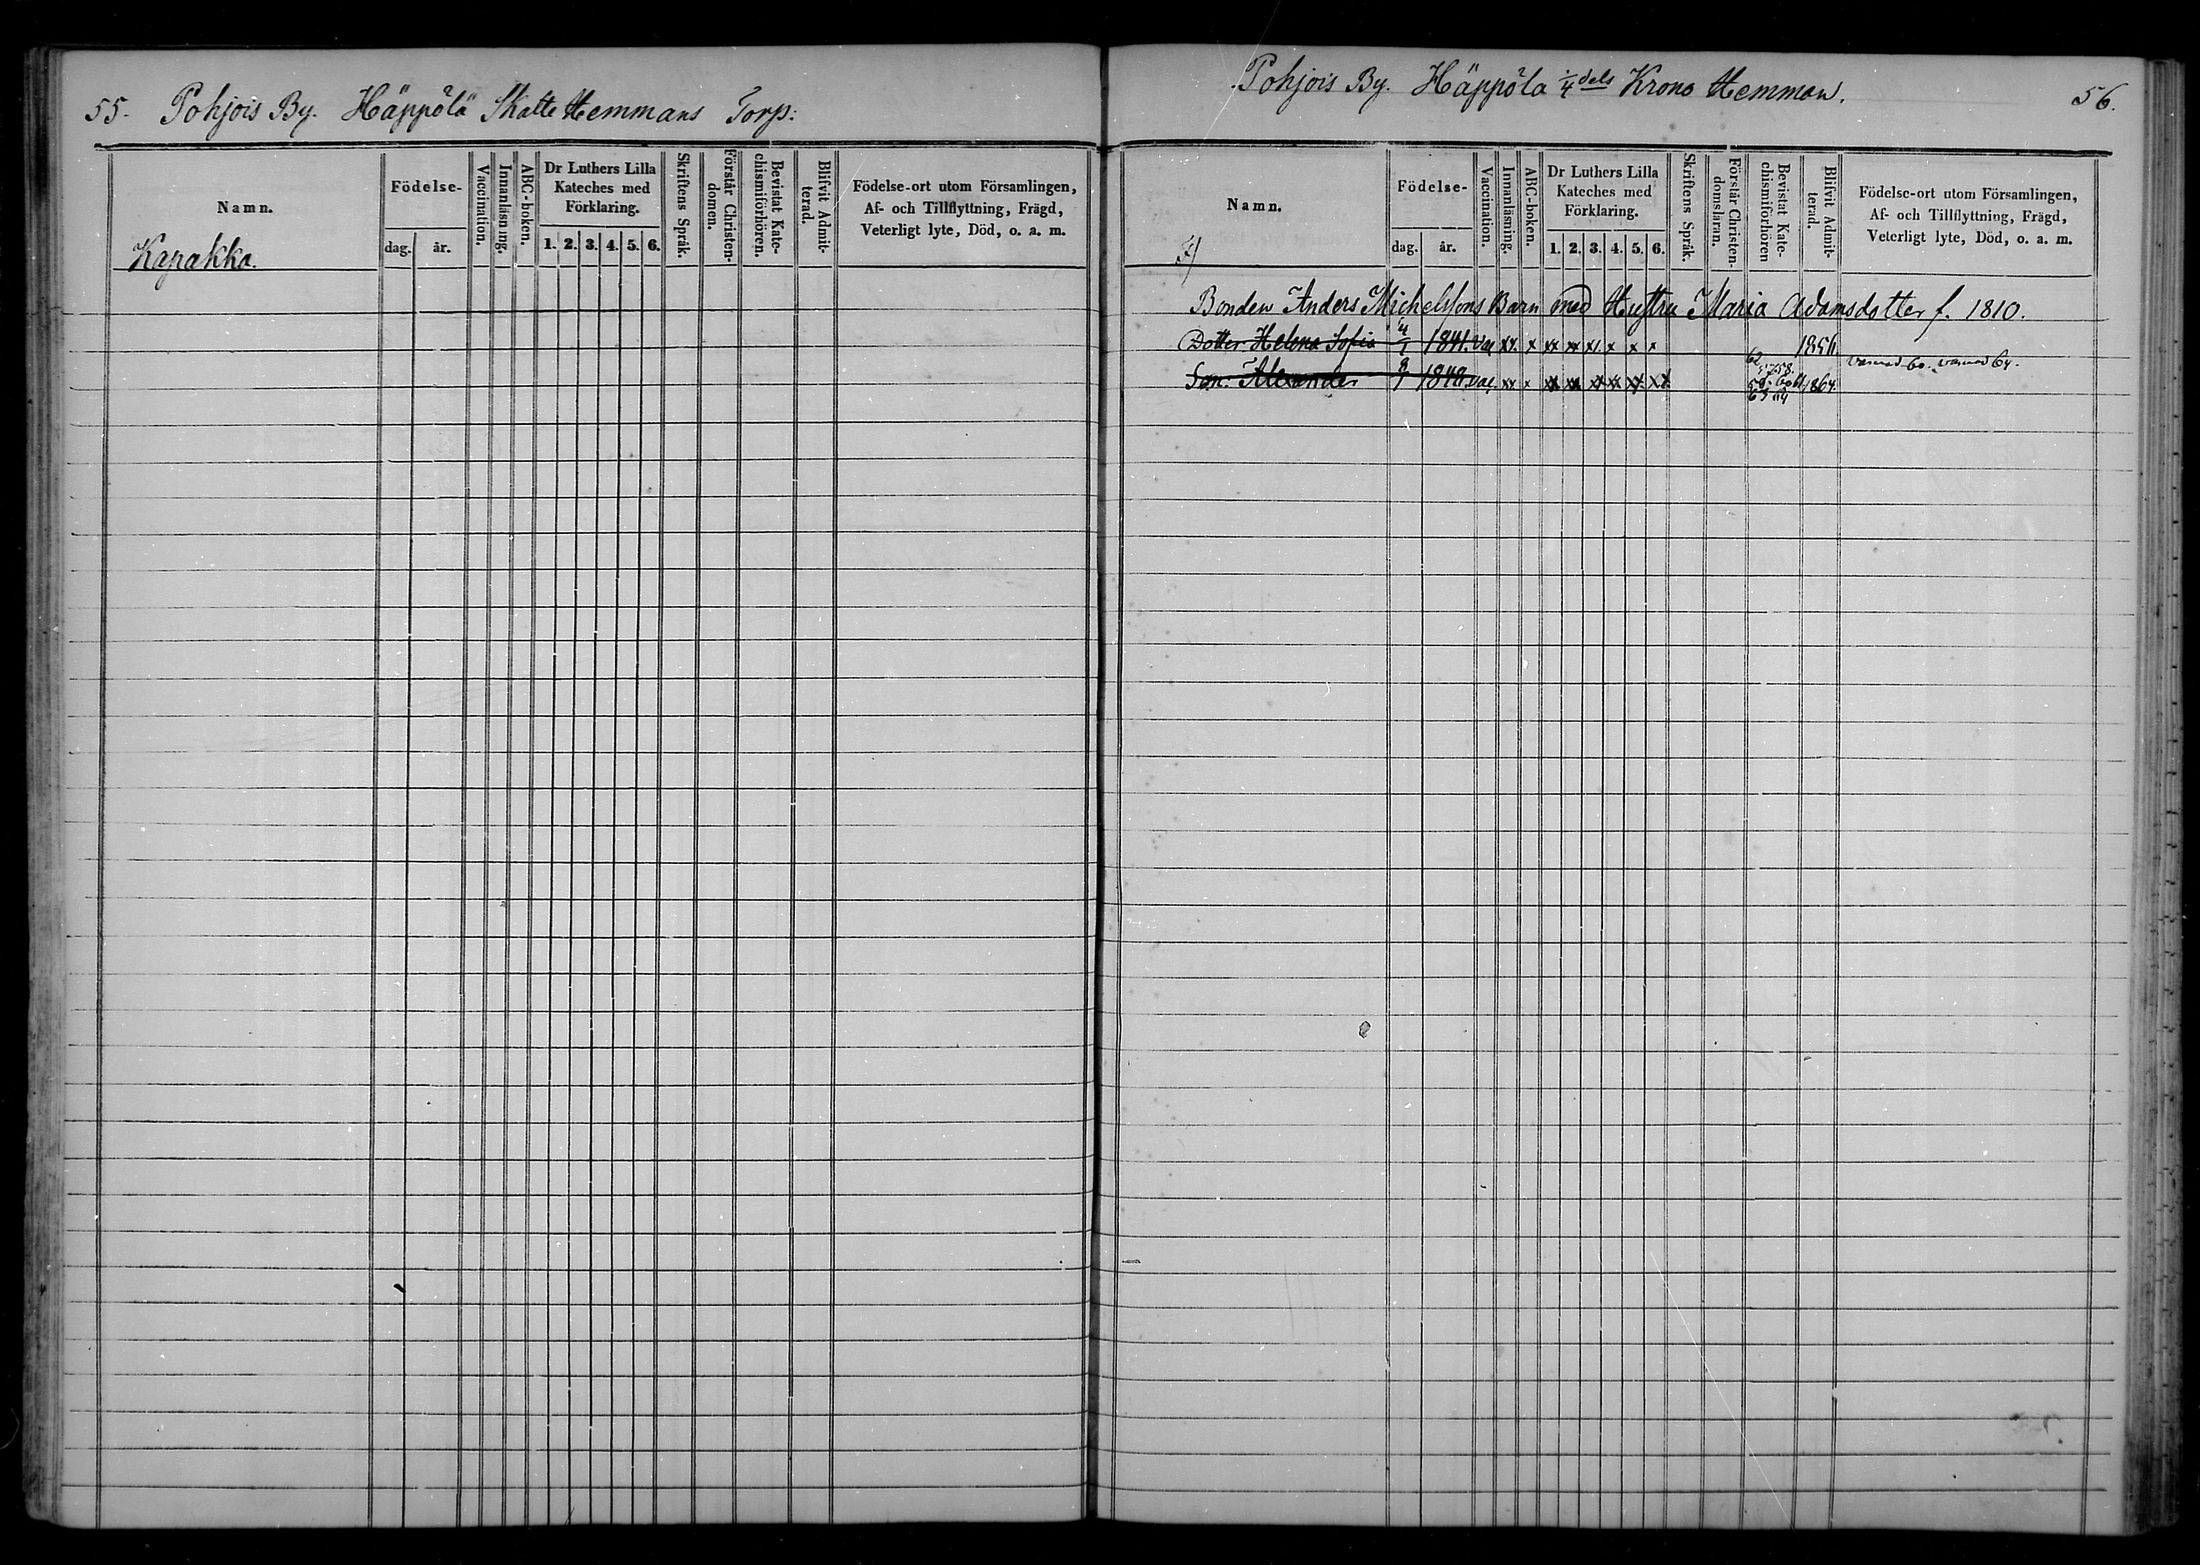 55. Pohjois By. Häppölä Skatte Hemmans Torp:
Namn.
Födelse-
dag. år.
Vaccination.
Innanläsning.
ABC-boken.
Dr Luthers Lilla
Kateches med
Förklaring.
1. 2. 3. 4. 5. 6.
Skriftens Språk.
Förstår Christen-
domen.
Bevistat Kate-
chismiförhören.
Blifvit Admit-
terad.
Födelse-ort utom Församlingen,
Af- och Tillflyttning, Frägd,
Veterligt lyte, Död, o. a. m.
Kapakka.
Pohjois By. Häppölä 1/4 dels Krono Hemman. 56.
Namn.
Födelse-
dag. år.
Vaccination.
Innanläsning.
ABC-boken.
Dr Luthers Lilla
Kateches med
Förklaring.
1. 2. 3. 4. 5. 6.
Skriftens Språk.
Förstår Christen-
domslaran.
Bevistat Kate-
chismiförhören
Blifvit Admit-
terad.
Födelse-ort utom Församlingen,
Af- och Tillflyttning, Frägd,
Veterligt lyte, Död, o. a. m.
Bonden Anders Michelssons Barn med Hustru Maria Adamsdotter f. 1810.
Dotter Helena Sofia 1841. Vac xx. x xx xx x. x x x
Son: Alexander 1848. Vac xx x xx xx xx xx xx xx 1864.